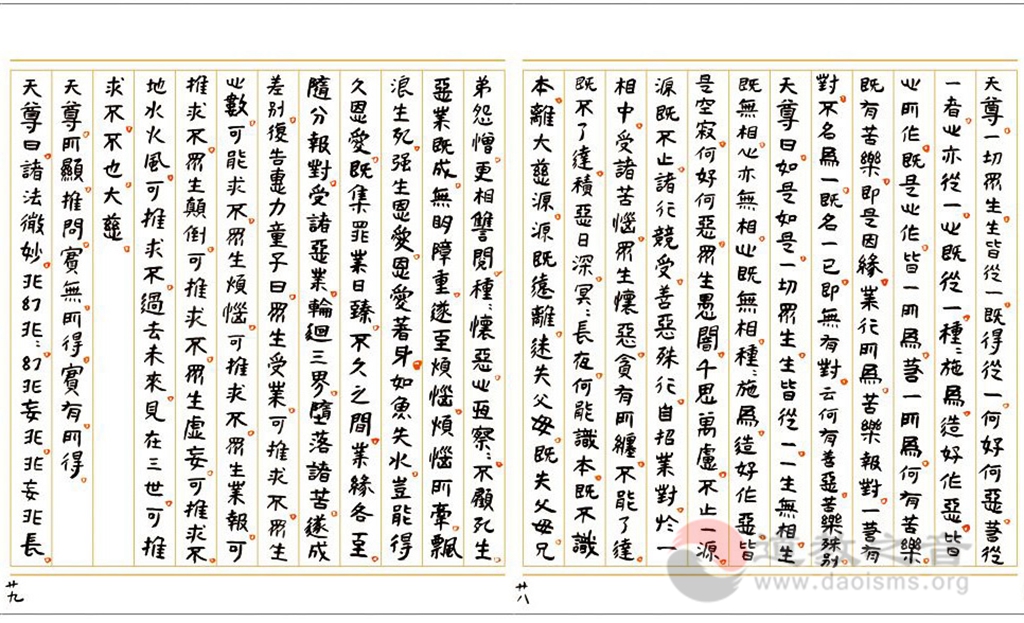 天尊一切眾生生皆從一既得從一何好何惡若從
一者心亦從一心既從一種:施為造好作惡皆
心所作既是心作皆一所為若一所為何有苦樂
既有苦樂即是因緣業行所為苦樂報對一若有
對不名為一既名一已即無有對云何有善惡苦樂殊別
天尊曰如是如是一切眾生生皆從一一生無相生
既無相心亦無相心既無相種:施為造好作惡皆
是空寂何好何惡眾生愚闇千思萬慮不止一源
源既不止諸行競受善惡殊行自招業對於一
相中受諸苦惱眾生懷惡貪有所纏不能了達
既不了達積惡日深冥:長夜何能識本既不識
本離大慈源源既遠離迷失父母既失父母兄
廿八
弟怨憎更相讐閱種:懷惡心恆察:不顧死生
惡業既成無明障重遂至煩惱煩惱所牽飄
浪生死强生恩愛恩愛著身如魚失水豈能得
久恩愛既集罪業日臻不久之間業緣各至
隨分報對受諸惡業輪迴三界墮落諸苦遂成
差別復告惠力童子曰眾生受業可推求不眾生
心數可能求不眾生煩惱可推求不眾生業報可
推求不眾生顛倒可推求不眾生虛妄可推求不
地水火風可推求不過去未來見在三世可推
求不不也大慈
天尊所顯推問實無所得實有所得
天尊曰諸法微妙非幻非:幻非妄非非妄非長
廿九
道教之音
www.daoisms.org